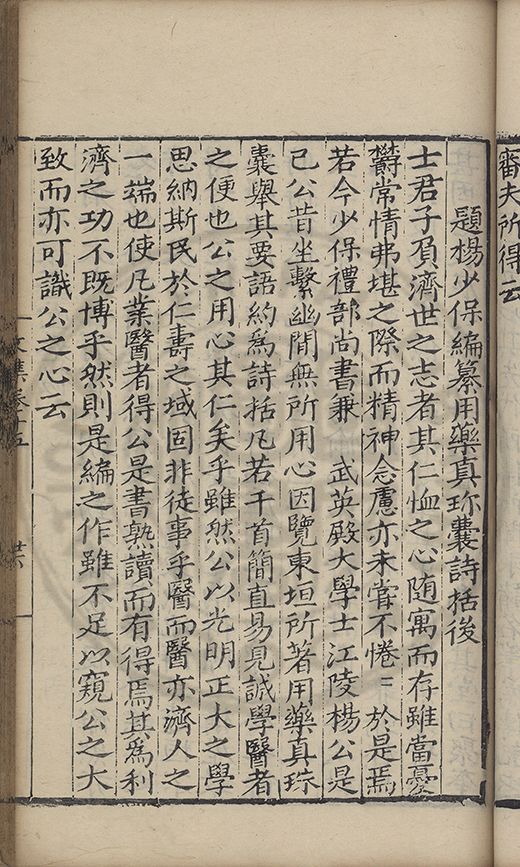 審夫所得云
題楊少保編纂用藥真珎囊詩括後
士君子負濟世之志者其仁恤之心随寓而存雖當憂
欝常情弗堪之際而精神念慮亦未甞不惓〻於是焉
若今少保禮部尚書兼　武英殿大學士江陵楊公是
已公昔坐繫幽閒無所用心因覽東垣所著用藥真珎
囊舉其要語約為詩括凡若干首簡直易見誠學醫者
之便也公之用心其仁矣乎雖然公以光明正大之學
思納斯民於仁壽之域固非徒事乎醫而醫亦濟人之
一端也使凡業醫者得公是書熟讀而有得焉其為利
濟之功不既博乎然則是編之作雖不足以窺公之大
致而亦可識公之心云
文集卷十五
廿六